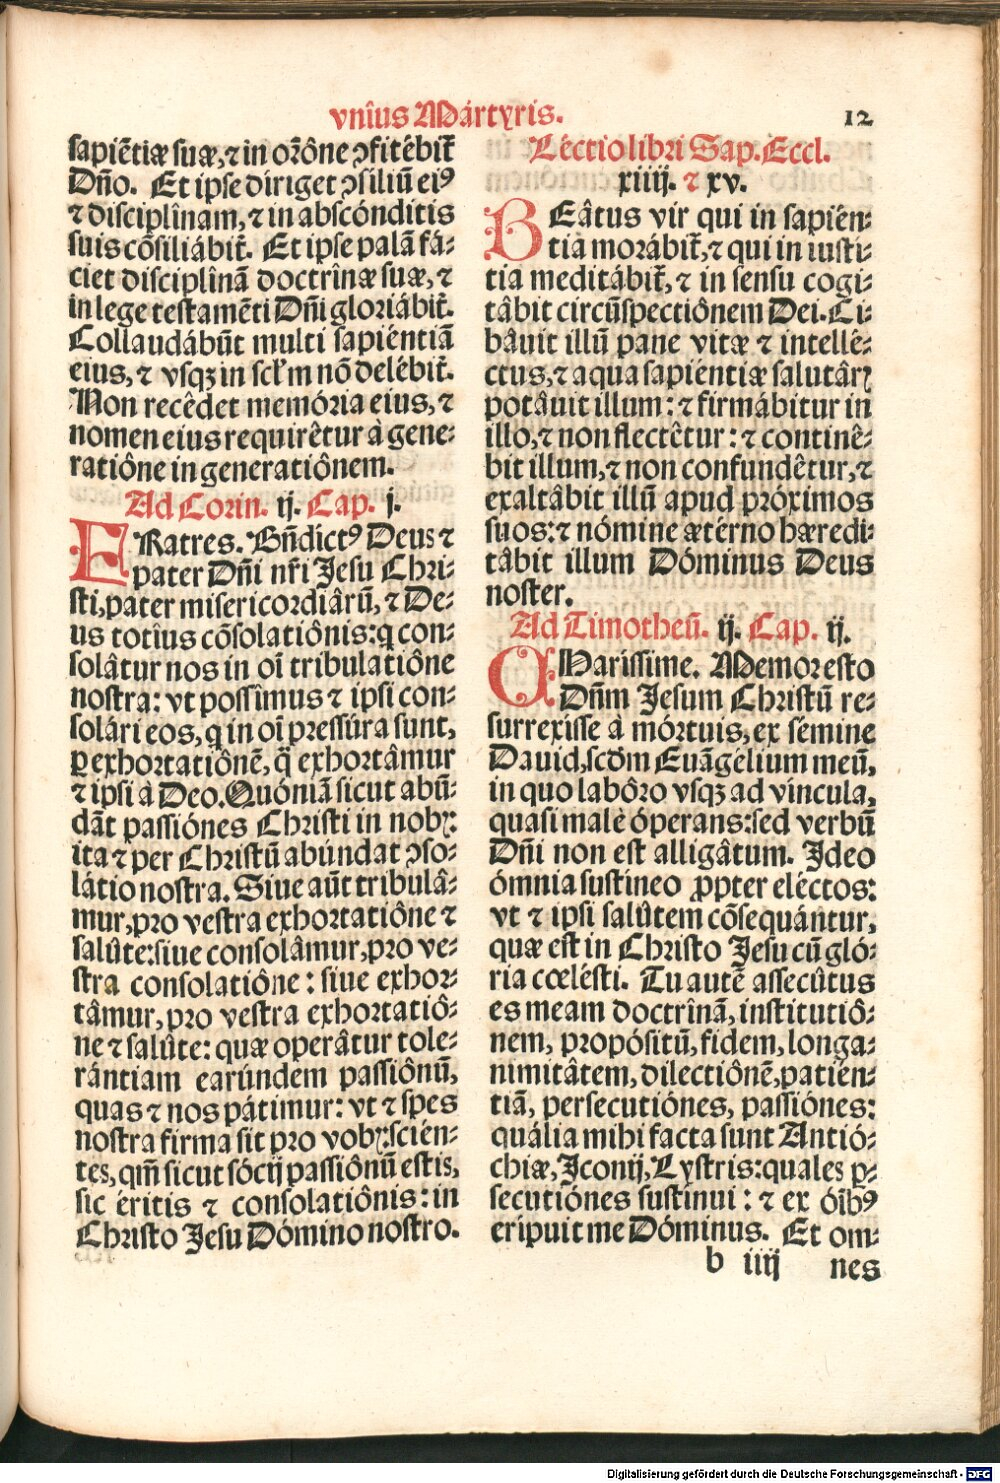 vnîus Mártyris.
12
sapiẽtiæ suæ, ⁊ in orõne ꝯfitébit̃
Dño. Et ipse diriget ꝯsiliũ eiꝰ
⁊ disciplînam, ⁊ in abscónditis
suis cõsiliábit̃. Et ipse palã fá⸗
ciet disciplînã doctrînæ suæ, ⁊
in lege testamẽti Dñi gloriábit̃.
Collaudábũt multi sapiéntiã
eius, ⁊ vsqꝫ in scl̃m nõ delébit̃.
Non recêdet memória eius, ⁊
nomen eius requirêtur à gene⸗
ratiône in generatiônem.
Ad Corin. ij. Cap. j.
FRatres. Bñdictꝰ Deus ⁊
pater Dñi nr̃i Jesu Chri⸗
sti, pater misericordiârũ, ⁊ De⸗
us totîus cõsolatiônis: q̇ con⸗
solâtur nos in oĩ tribulatiône
nostra: vt possîmus ⁊ ipsi con⸗
solári eos, q̇ in oĩ pressúra sunt,
ꝑ exhortatiônẽ, q̃ exhortâmur
⁊ ipsi à Deo. Quóniã sicut abũ⸗
dãt passiónes Christi in nobꝭ:
ita ⁊ per Christũ abúndat ꝯso⸗
látio nostra. Siue aũt tribulâ⸗
mur, pro vestra exhortatiône ⁊
salûte: siue consolâmur, pro ve⸗
stra consolatiône: siue exhor⸗
tâmur, pro vestra exhortatiô⸗
ne ⁊ salûte: quæ operâtur tole⸗
rántiam earúndem passiônũ,
quas ⁊ nos pátimur: vt ⁊ spes
nostra firma sit pro vobꝭ: scién⸗
tes, qm̃ sicut sócij passiônũ estis,
sic éritis ⁊ consolatiônis: in
Christo Jesu Dómino nostro.
Léctio libri Sap. Eccl.
xiiij. ⁊ xv.
BEâtus vir qui in sapién⸗
tia morábit̃, ⁊ qui in iusti⸗
tia meditábit̃, ⁊ in sensu cogi⸗
tâbit circũspectiônem Dei. Ci⸗
bâuit illũ pane vitæ ⁊ intellé⸗
ctus, ⁊ aqua sapiéntiæ salutârꝭ
potâuit illum: ⁊ firmábitur in
illo, ⁊ non flectêtur: ⁊ continê⸗
bit illum, ⁊ non confundêtur, ⁊
exaltâbit illũ apud próximos
suos: ⁊ nómine ætérno hæredi⸗
tâbit illum Dóminus Deus
noster.
Ad Timotheũ. ij. Cap. ij.
CHarissime. Memor esto
Dñm Jesum Christũ re⸗
surrexisse à mórtuis, ex sémine
Dauid, scd̃m Euãgélium meũ,
in quo labôro vsqꝫ ad víncula,
quasi malè óperans: sed verbũ
Dñi non est alligâtum. Ideo
ómnia sustíneo ꝓpter eléctos:
vt ⁊ ipsi salûtem cõsequántur,
quæ est in Christo Jesu cũ gló⸗
ria cœlésti. Tu autẽ assecûtus
es meam doctrînã, institutiô⸗
nem, propósitũ, fidem, longa⸗
nimitâtem, dilectiônẽ, patién⸗
tiã, persecutiónes, passiónes:
quália mihi facta sunt Antió⸗
chiæ, Jconij, Lystris: quales ꝑ⸗
secutiónes sustínui: ⁊ ex óĩbꝰ
erípuit me Dóminus. Et om⸗
b iiij nes
Digitalisierung gefördert durch die Deutsche Forschungsgemeinschaft - DFG